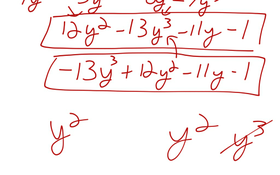 12y² -13y³ -11y -1
-13y³ +12y² -11y -1
y² y² y³